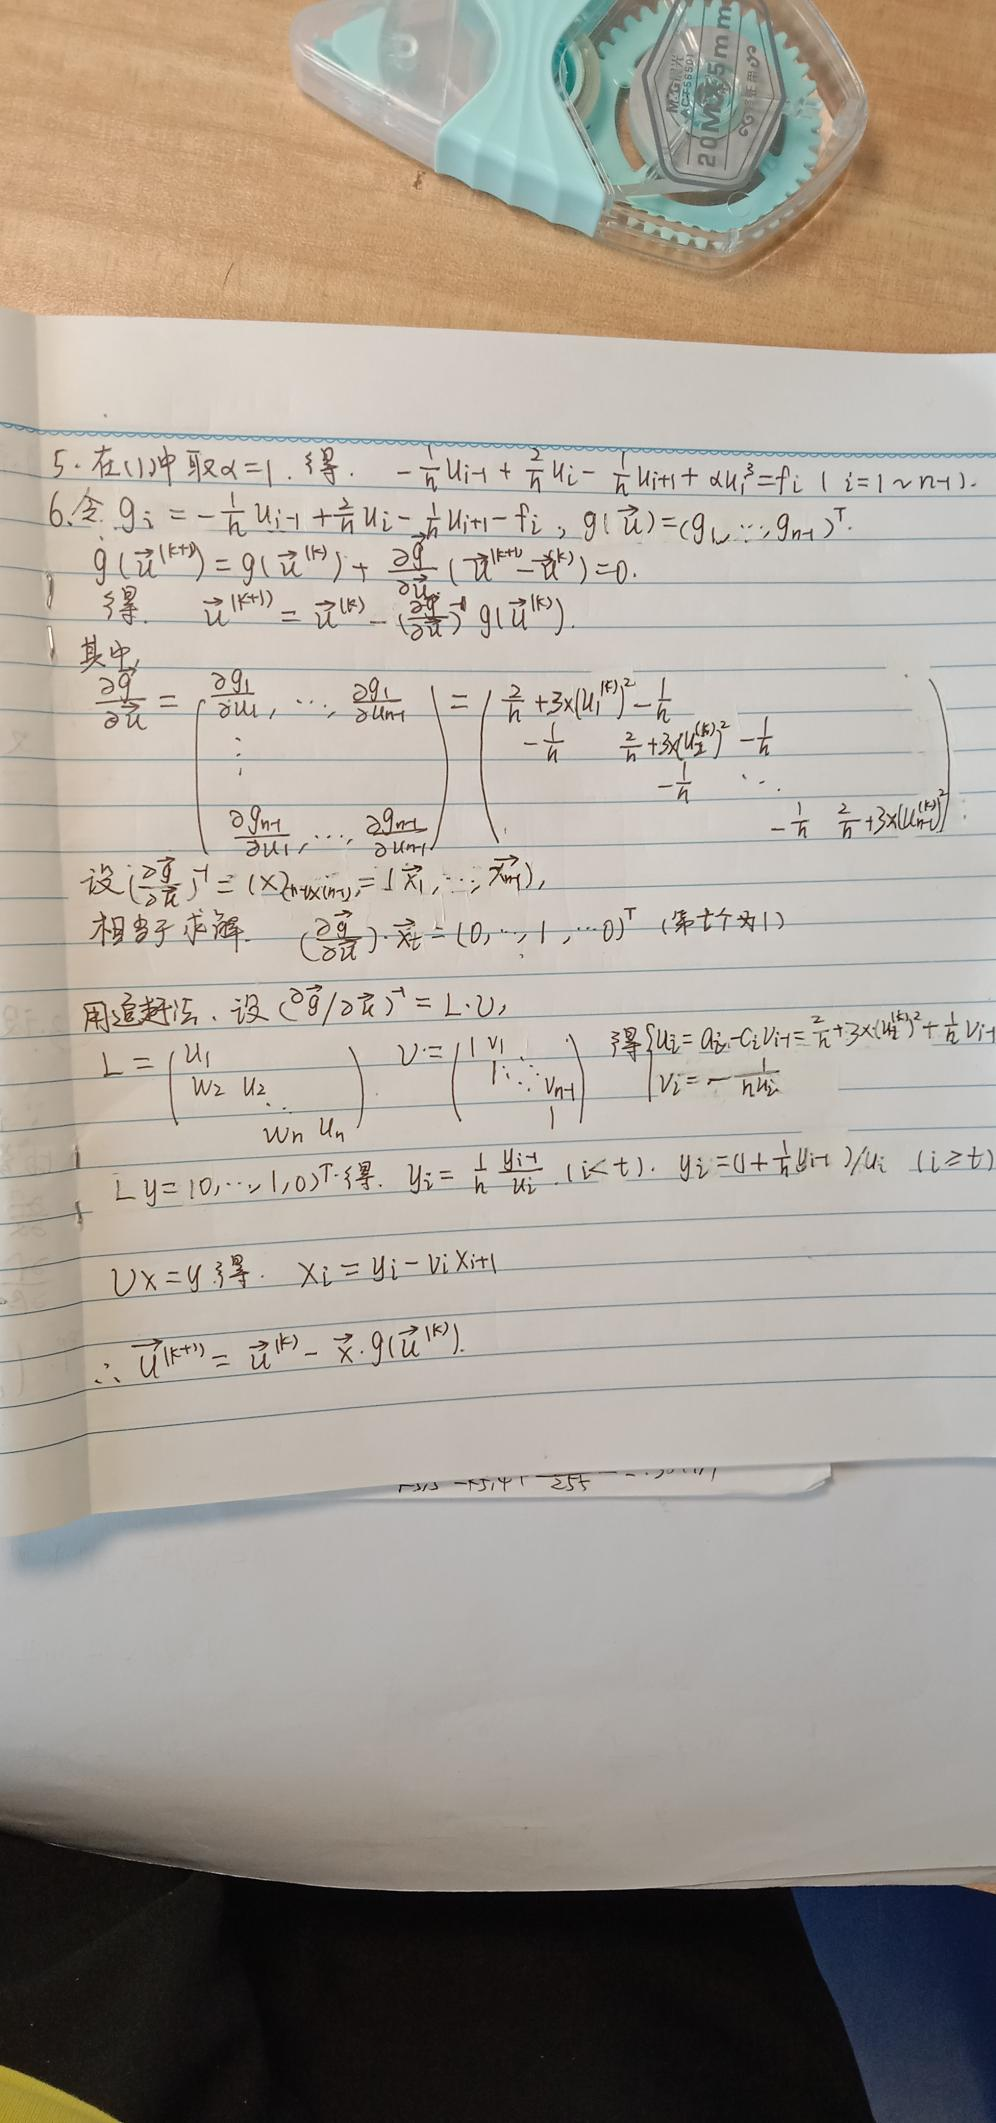 M&G晨光
ACT56501
20M×5mm
修正带
5. 在(1)中取α=1. 得. -1/h u_{i-1} + 2/h u_i - 1/h u_{i+1} + αu_i^3 = f_i (i=1~n-1).
6. 令 g_i = -1/h u_{i-1} + 2/h u_i - 1/h u_{i+1} - f_i, g(u⃗) = (g_1, ..., g_{n-1})^T.
g(u⃗^{(k+1)}) = g(u⃗^{(k)}) + ∂g⃗/∂u⃗ (u⃗^{(k+1)} - u⃗^{(k)}) = 0.
得. u⃗^{(k+1)} = u⃗^{(k)} - (∂g⃗/∂u⃗)^{-1} g(u⃗^{(k)}).
其中,
∂g⃗/∂u⃗ = ( ∂g_1/∂u_1, ..., ∂g_1/∂u_{n-1} ⋮ ∂g_{n-1}/∂u_1, ..., ∂g_{n-1}/∂u_{n-1} ) = ( 2/h + 3×(u_1^{(k)})^2 -1/h
-1/h 2/h + 3×(u_2^{(k)})^2 -1/h
-1/h ⋱
-1/h 2/h + 3×(u_{n-1}^{(k)})^2 )
设 (∂g⃗/∂u⃗)^{-1} = (X)_{(n-1)×(n-1)} = (x⃗_1, ..., x⃗_{n-1}),
相当于求解. (∂g⃗/∂u⃗)·x⃗_t = (0, ..., 1, ...0)^T (第t个为1)
用追赶法. 设 (∂g⃗/∂u⃗)^{-1} = L·U,
L = ( u_1 w_2 u_2 ⋱ w_n u_n ) U = ( 1 v_1 1 ⋱ ⋱ v_{n-1} 1 ) 得 { u_i = a_i - c_i v_{i-1} = 2/h + 3×(u_i^{(k)})^2 + 1/h v_{i-1}
v_i = -1/(h u_i)
Ly = (0, ..., 1, 0)^T 得. y_i = 1/h y_{i-1}/u_i (i<t). y_i = (1 + 1/h y_{i-1})/u_i (i≥t)
Ux = y 得. x_i = y_i - v_i x_{i+1}
∴ u⃗^{(k+1)} = u⃗^{(k)} - x⃗·g(u⃗^{(k)}).